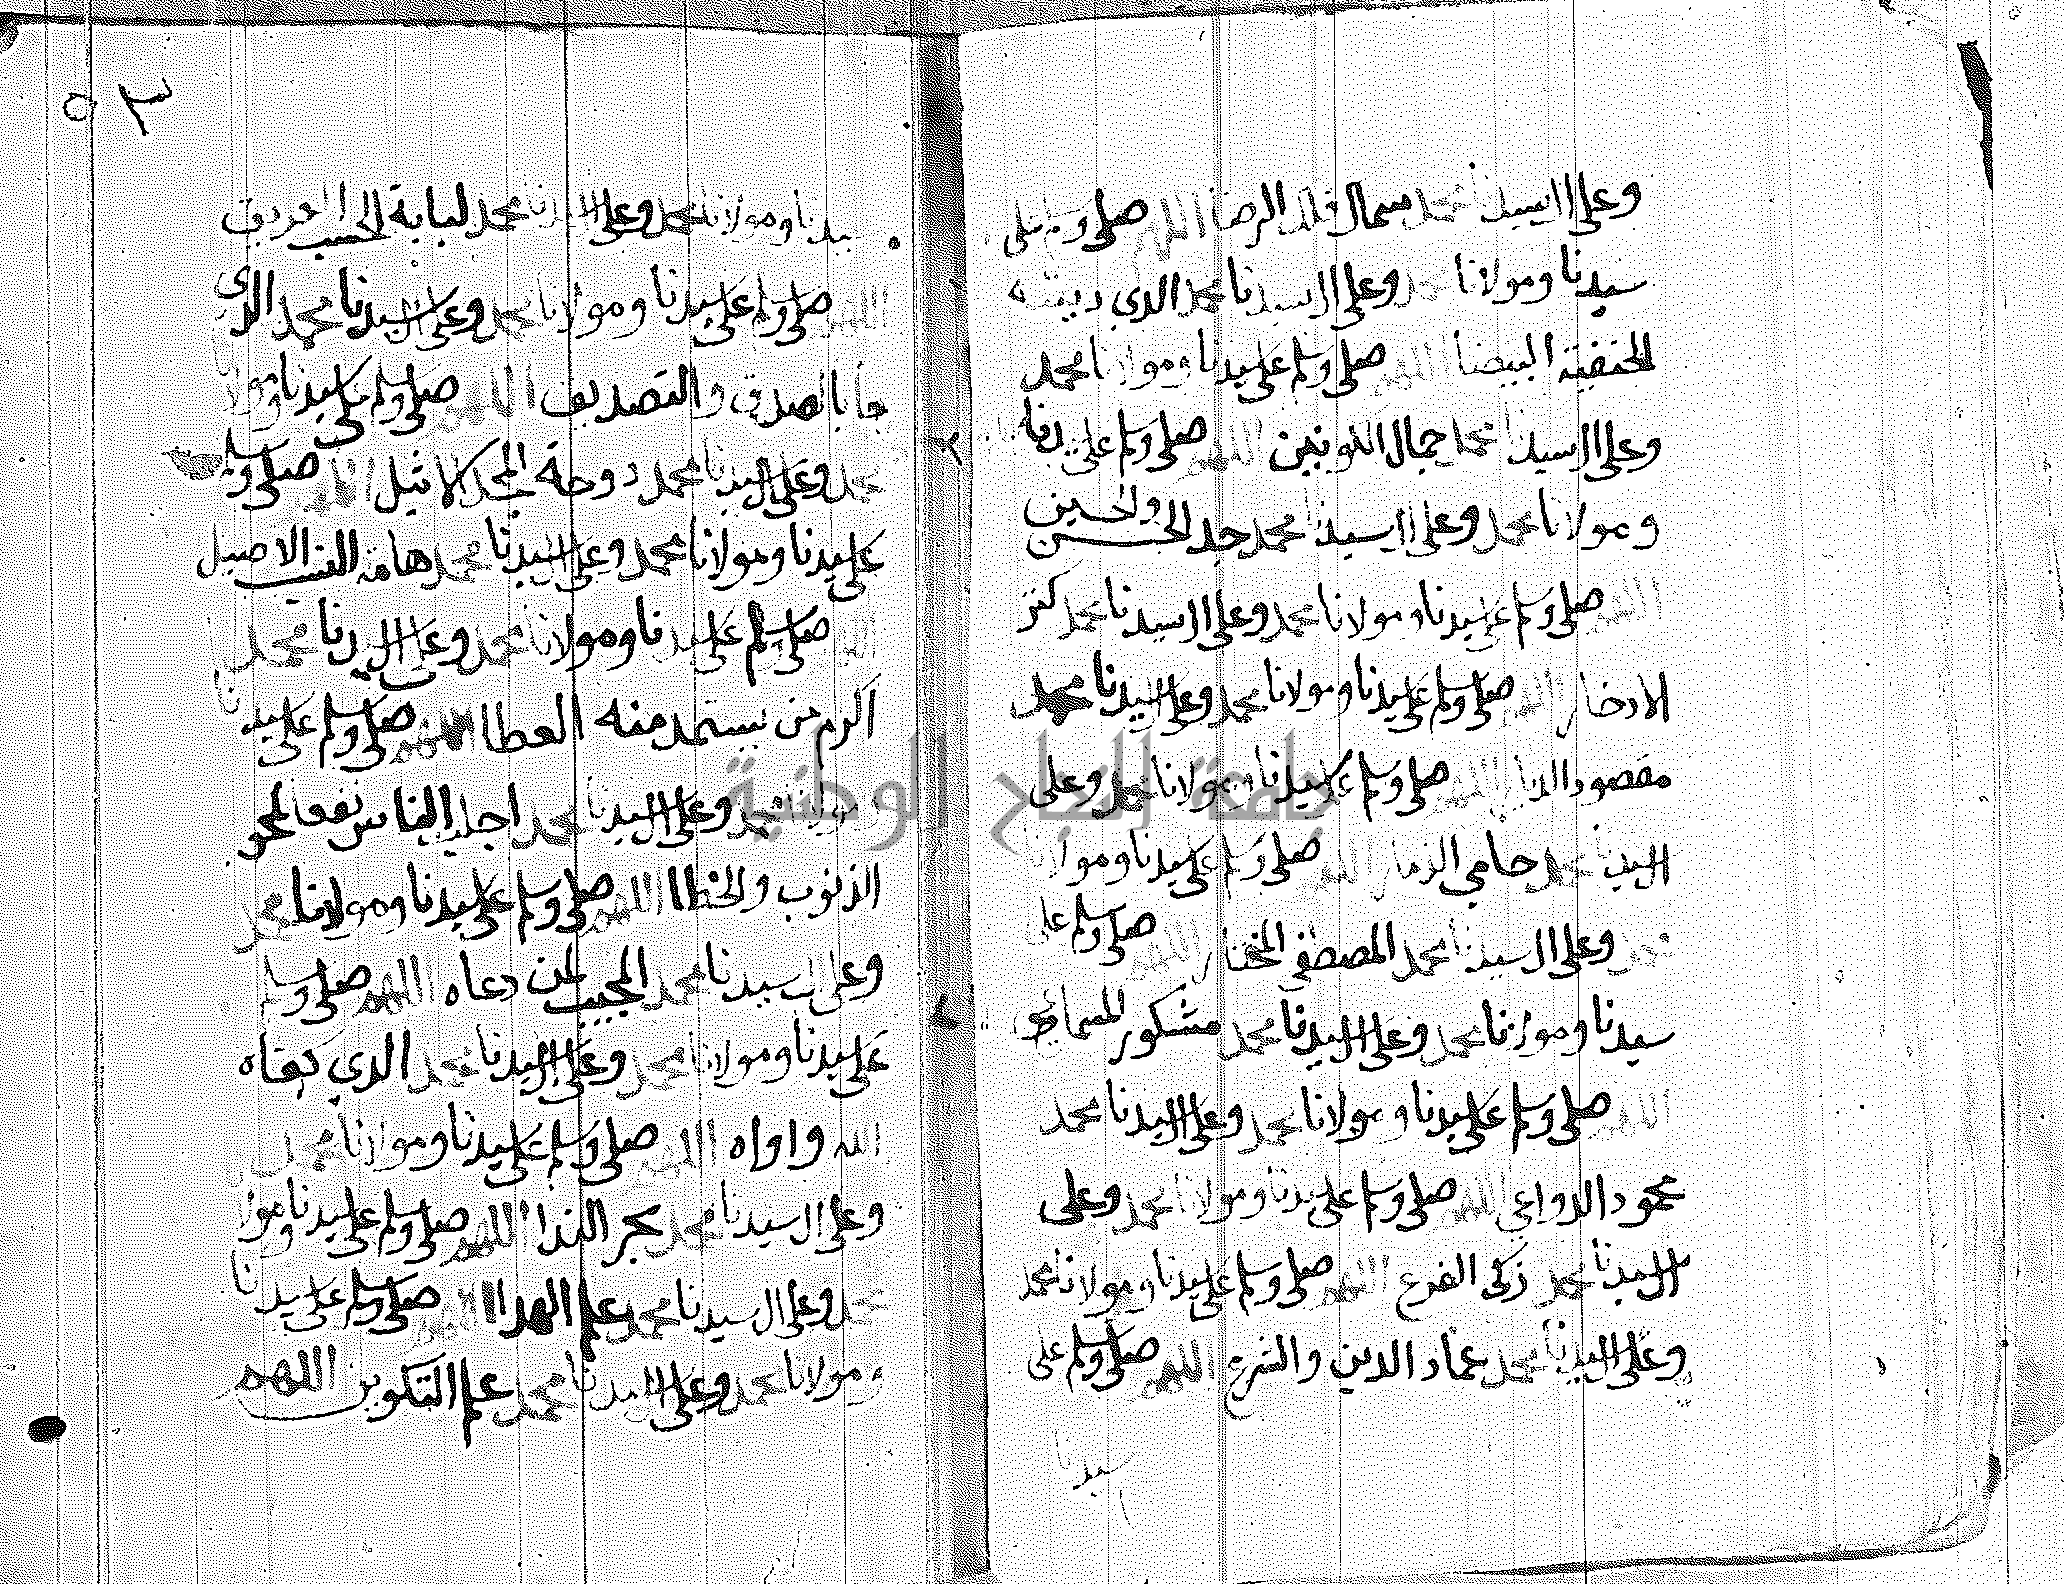 وعلى ال سيدنا محمد سما فلك الرضا اللهم صلى وسلم على
سيدنا ومولانا محمد وعلى ال سيدنا محمد الدي
الحنفية البيضا اللهم صلى وسلم على سيدنا ومولانا محمد
وعلى ال سيدنا محمد جمال الكونين اللهم صلى وسلم على
ومولانا محمد وعلى ال سيدنا محمد جد الحسن والحسين
اللهم صلى وسلم على سيدنا ومولانا محمد وعلى ال سيدنا محمد كنز
الادخار اللهم صلى وسلم على سيدنا ومولانا محمد وعلى ال سيدنا محمد
مقصود اللهم صلى وسلم على سيدنا ومولانا محمد وعلى
ال سيدنا محمد حامي الزمار اللهم صلى وسلم على سيدنا ومولانا
محمد وعلى ال سيدنا محمد المصطفى المختار اللهم صلى وسلم على
سيدنا ومولانا محمد وعلى ال سيدنا محمد مشكور المساعي
اللهم صلى وسلم على سيدنا ومولانا محمد وعلى ال سيدنا محمد
محمود الدواعي اللهم صلى وسلم على سيدنا ومولانا محمد وعلى
ال سيدنا محمد زكى الفرع اللهم صلى وسلم على سيدنا ومولانا محمد
وعلى ال سيدنا محمد عماد الدين والشرع اللهم صلى وسلم على
سيدنا
٥٣
سيدنا ومولانا محمد وعلى ال سيدنا محمد لبابة الحسب العريق
اللهم صلى وسلم على سيدنا ومولانا محمد وعلى ال سيدنا محمد الذي
جا بالصدق والتصديق اللهم صلى وسلم على سيدنا ومولانا
محمد وعلى ال سيدنا محمد دوحة المجد الاثيل اللهم صلى وسلم
على سيدنا ومولانا محمد وعلى ال سيدنا محمد هامة النسب الاصيل
اللهم صلى وسلم على سيدنا ومولانا محمد وعلى ال سيدنا محمد
اكرم من يستمد منه العطا اللهم صلى وسلم على سيدنا
ومولانا محمد وعلى ال سيدنا محمد اجل الناس نفعا لمحو
الذنوب والخطا اللهم صلى وسلم على سيدنا ومولانا محمد
وعلى ال سيدنا محمد المجيب لمن دعاه اللهم صلى وسلم
على سيدنا ومولانا محمد وعلى ال سيدنا محمد الدي كفاه
الله واواه اللهم صلى وسلم على سيدنا ومولانا محمد
وعلى ال سيدنا محمد بحر الندا اللهم صلى وسلم على سيدنا ومولانا
محمد وعلى ال سيدنا محمد علم الهدا اللهم صلى وسلم على سيدنا
ومولانا محمد وعلى ال سيدنا محمد علم التكوين اللهم
جامعة النجاح الوطنية